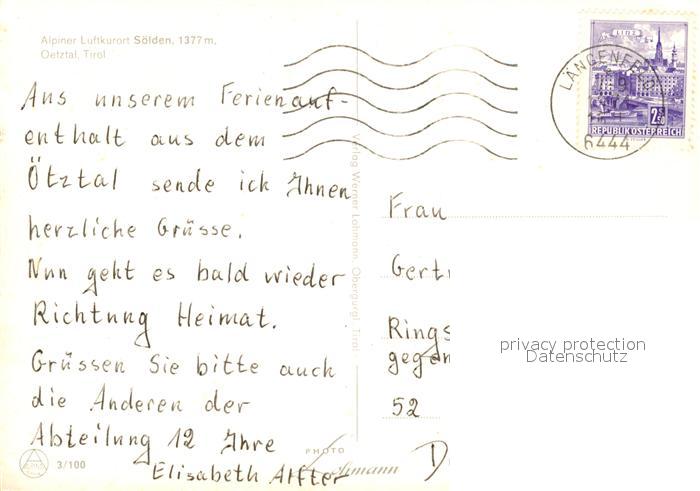 Alpiner Luftkurort Sölden, 1377 m,
Oetztal, Tirol
Aus unserem Ferienauf-
enthalt aus dem
Ötztal sende ich Ihnen
herzliche Grüsse.
Nun geht es bald wieder
Richtung Heimat.
Grüssen Sie bitte auch
die Anderen der
Abteilung 12 Ihre
Elisabeth
3/100
PHOTO
Verlag Werner Lohmann, Obergurgl, Tirol
LINZ
REPUBLIK ÖSTERREICH
6444
Frau
Gert
Rings
gegen
52
D
privacy protection
Datenschutz